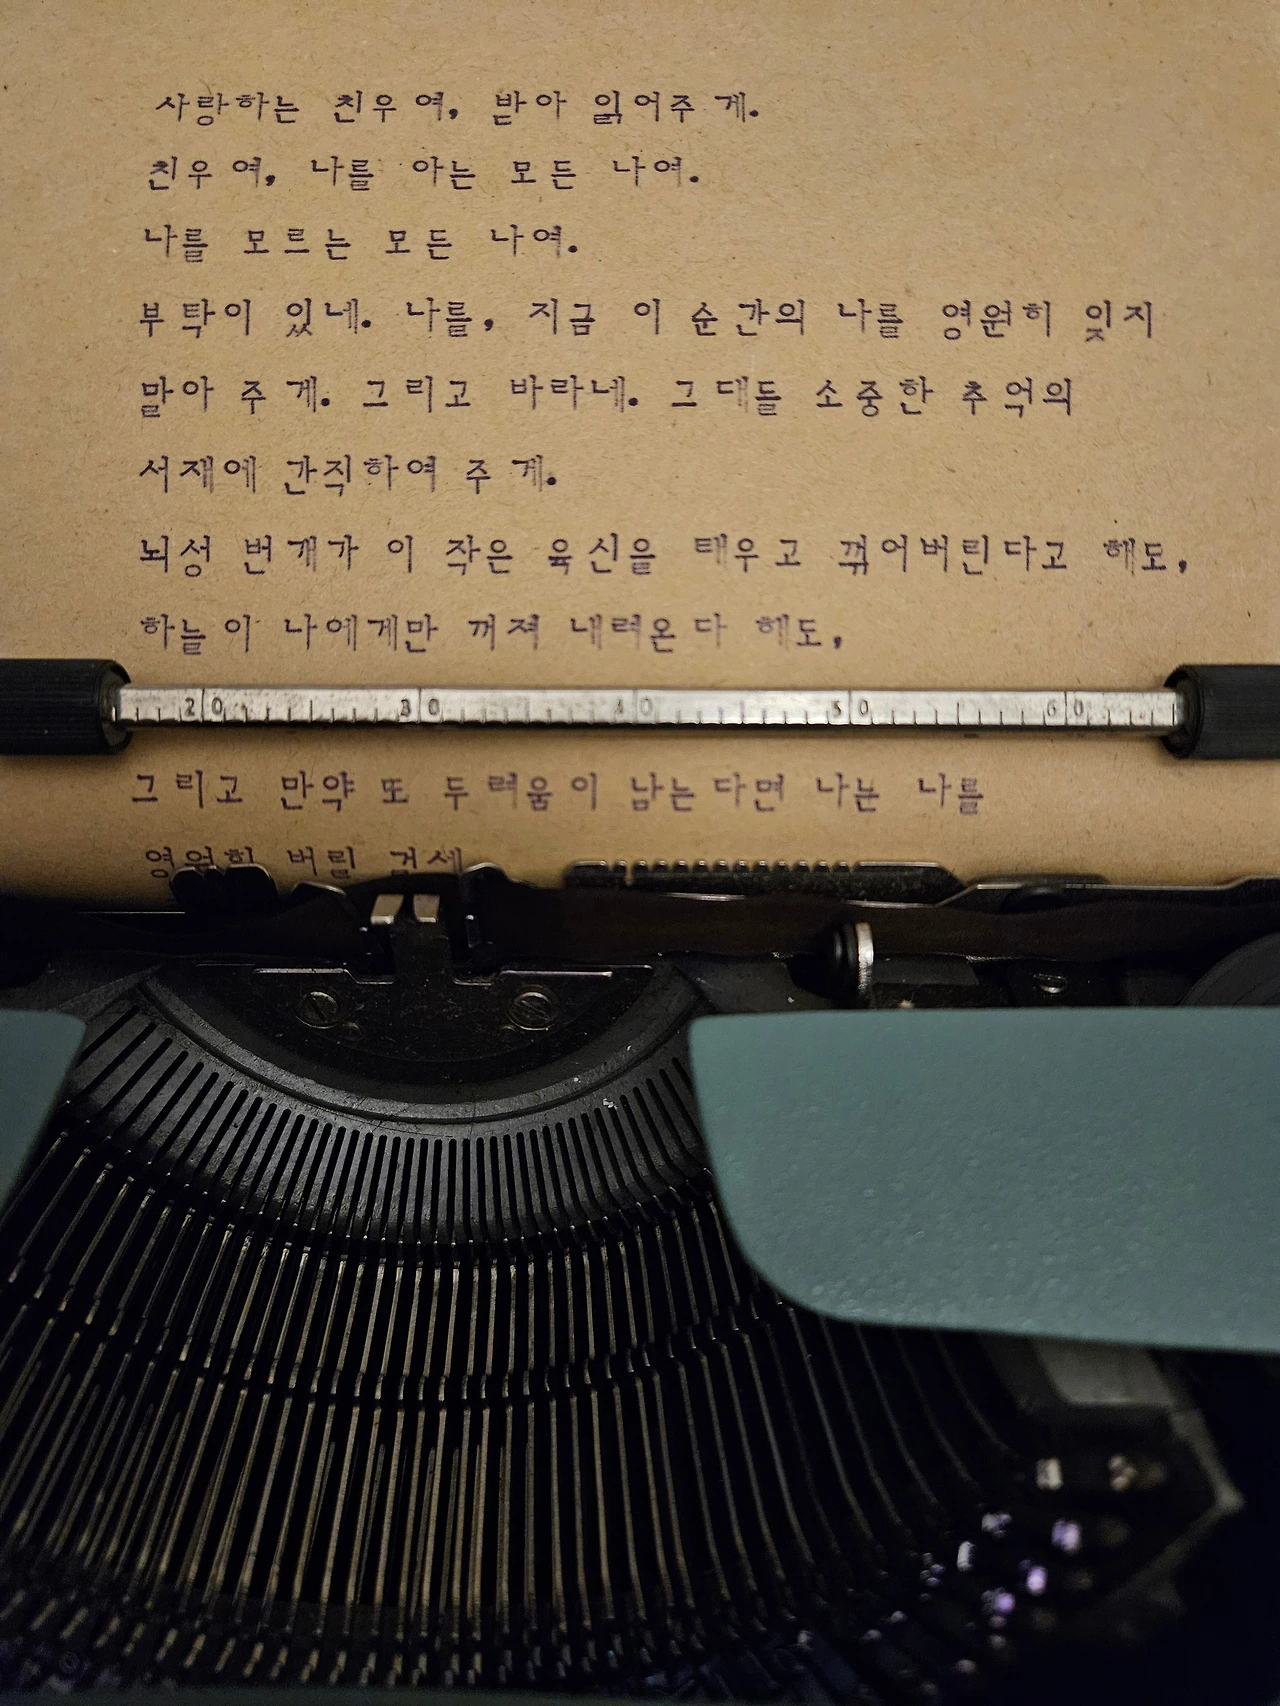 사랑하는 친우여, 받아 읽어주게.
친우여, 나를 아는 모든 나여.
나를 모르는 모든 나여.
부탁이 있네. 나를, 지금 이 순간의 나를 영원히 잊지
말아 주게. 그리고 바라네. 그대들 소중한 추억의
서재에 간직하여 주게.
뇌성 번개가 이 작은 육신을 태우고 꺾어버린다고 해도,
하늘이 나에게만 꺼져 내려온다 해도,
20 30 40 50 60
그리고 만약 또 두려움이 남는다면 나는 나를
영원히 버릴 걸세